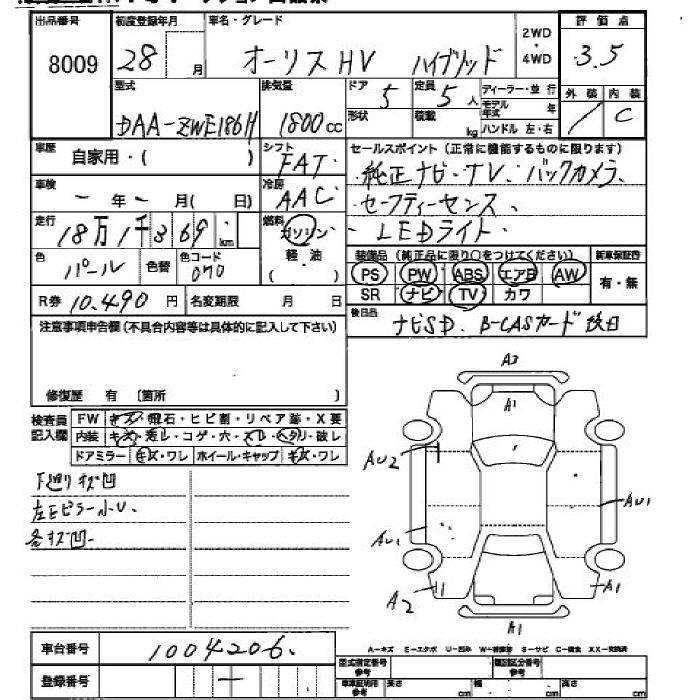 出品番号 初度登録年月 車名・グレード 2WD・4WD 評価点
8009 28 月 オーリスHV ハイブリッド 3.5
型式 排気量 ドア 定員 ディーラー・並行 外装 内装
DAA-ZWE186H 1800cc 5 5人 モデル年式 年 C
形状 積載 kg ハンドル 左・右
車歴 自家用・( ) シフト FAT セールスポイント(正常に機能するものに限ります)
車検 ー年ー月( 日) 冷房 AAC 純正ナビ・TV、バックカメラ
走行 18万1千369 km 燃料 ガソリン セーフティーセンス、
軽・油 ( ) LEDライト
色 パール 色替 色コード 070 装備品(純正品に限り○をつけてください) 新車保証書
PS PW ABS エアB AW 有・無
R券 10.490円 名変期限 月 日 SR ナビ TV カワ
注意事項申告欄(不具合内容等は具体的に記入して下さい) 後日品 ナビSD、B-CASカード後日
修復歴 有 〔箇所 〕
検査員記入欄 FW キズ・飛石・ヒビ割・リペア跡・X要
内装 キズ・汚レ・コゲ・穴・スレ・ヘタリ・破レ
ドアミラー キズ・ワレ ホイール・キャップ キズ・ワレ
下廻りキズ凹
左Eピラー小U、
各キズ凹
A3
A1
AU2
AU1
AU1
A2
A1
A1
車台番号 1004206
A-キズ E-エクボ U-凹み W-補修跡 S-サビ C-腐食 XX-交換済
登録番号 ー 型式指定番号参考 類別区分番号参考
車車証明用参考 長さ cm 幅 cm 高さ cm